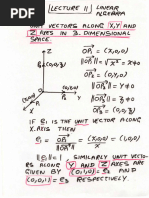 LECTURE 11 LINEAR
ALGEBRA
UNIT VECTORS ALONG X,Y AND
Z AXES IN 3-DIMENSIONAL
SPACE.
Z
OP₁ = (x,0,0)
‖OP₁‖ = √x² = x≠0
OP₂ = (0,y,0)
‖OP₂‖ = y≠0
Y
X
IF e₁ IS THE UNIT VECTOR ALONG
X.AXIS THEN
e₁ = OP₁ / ‖OP₁‖ = (x,0,0) / x = (1,0,0)
‖e₁‖ = 1 SIMILARLY UNIT VECTO-
RS ALONG Y AND Z AXES ARE
GIVEN BY (0,1,0)=e₂ AND
(0,0,1)=e₃ RESPECTIVELY.